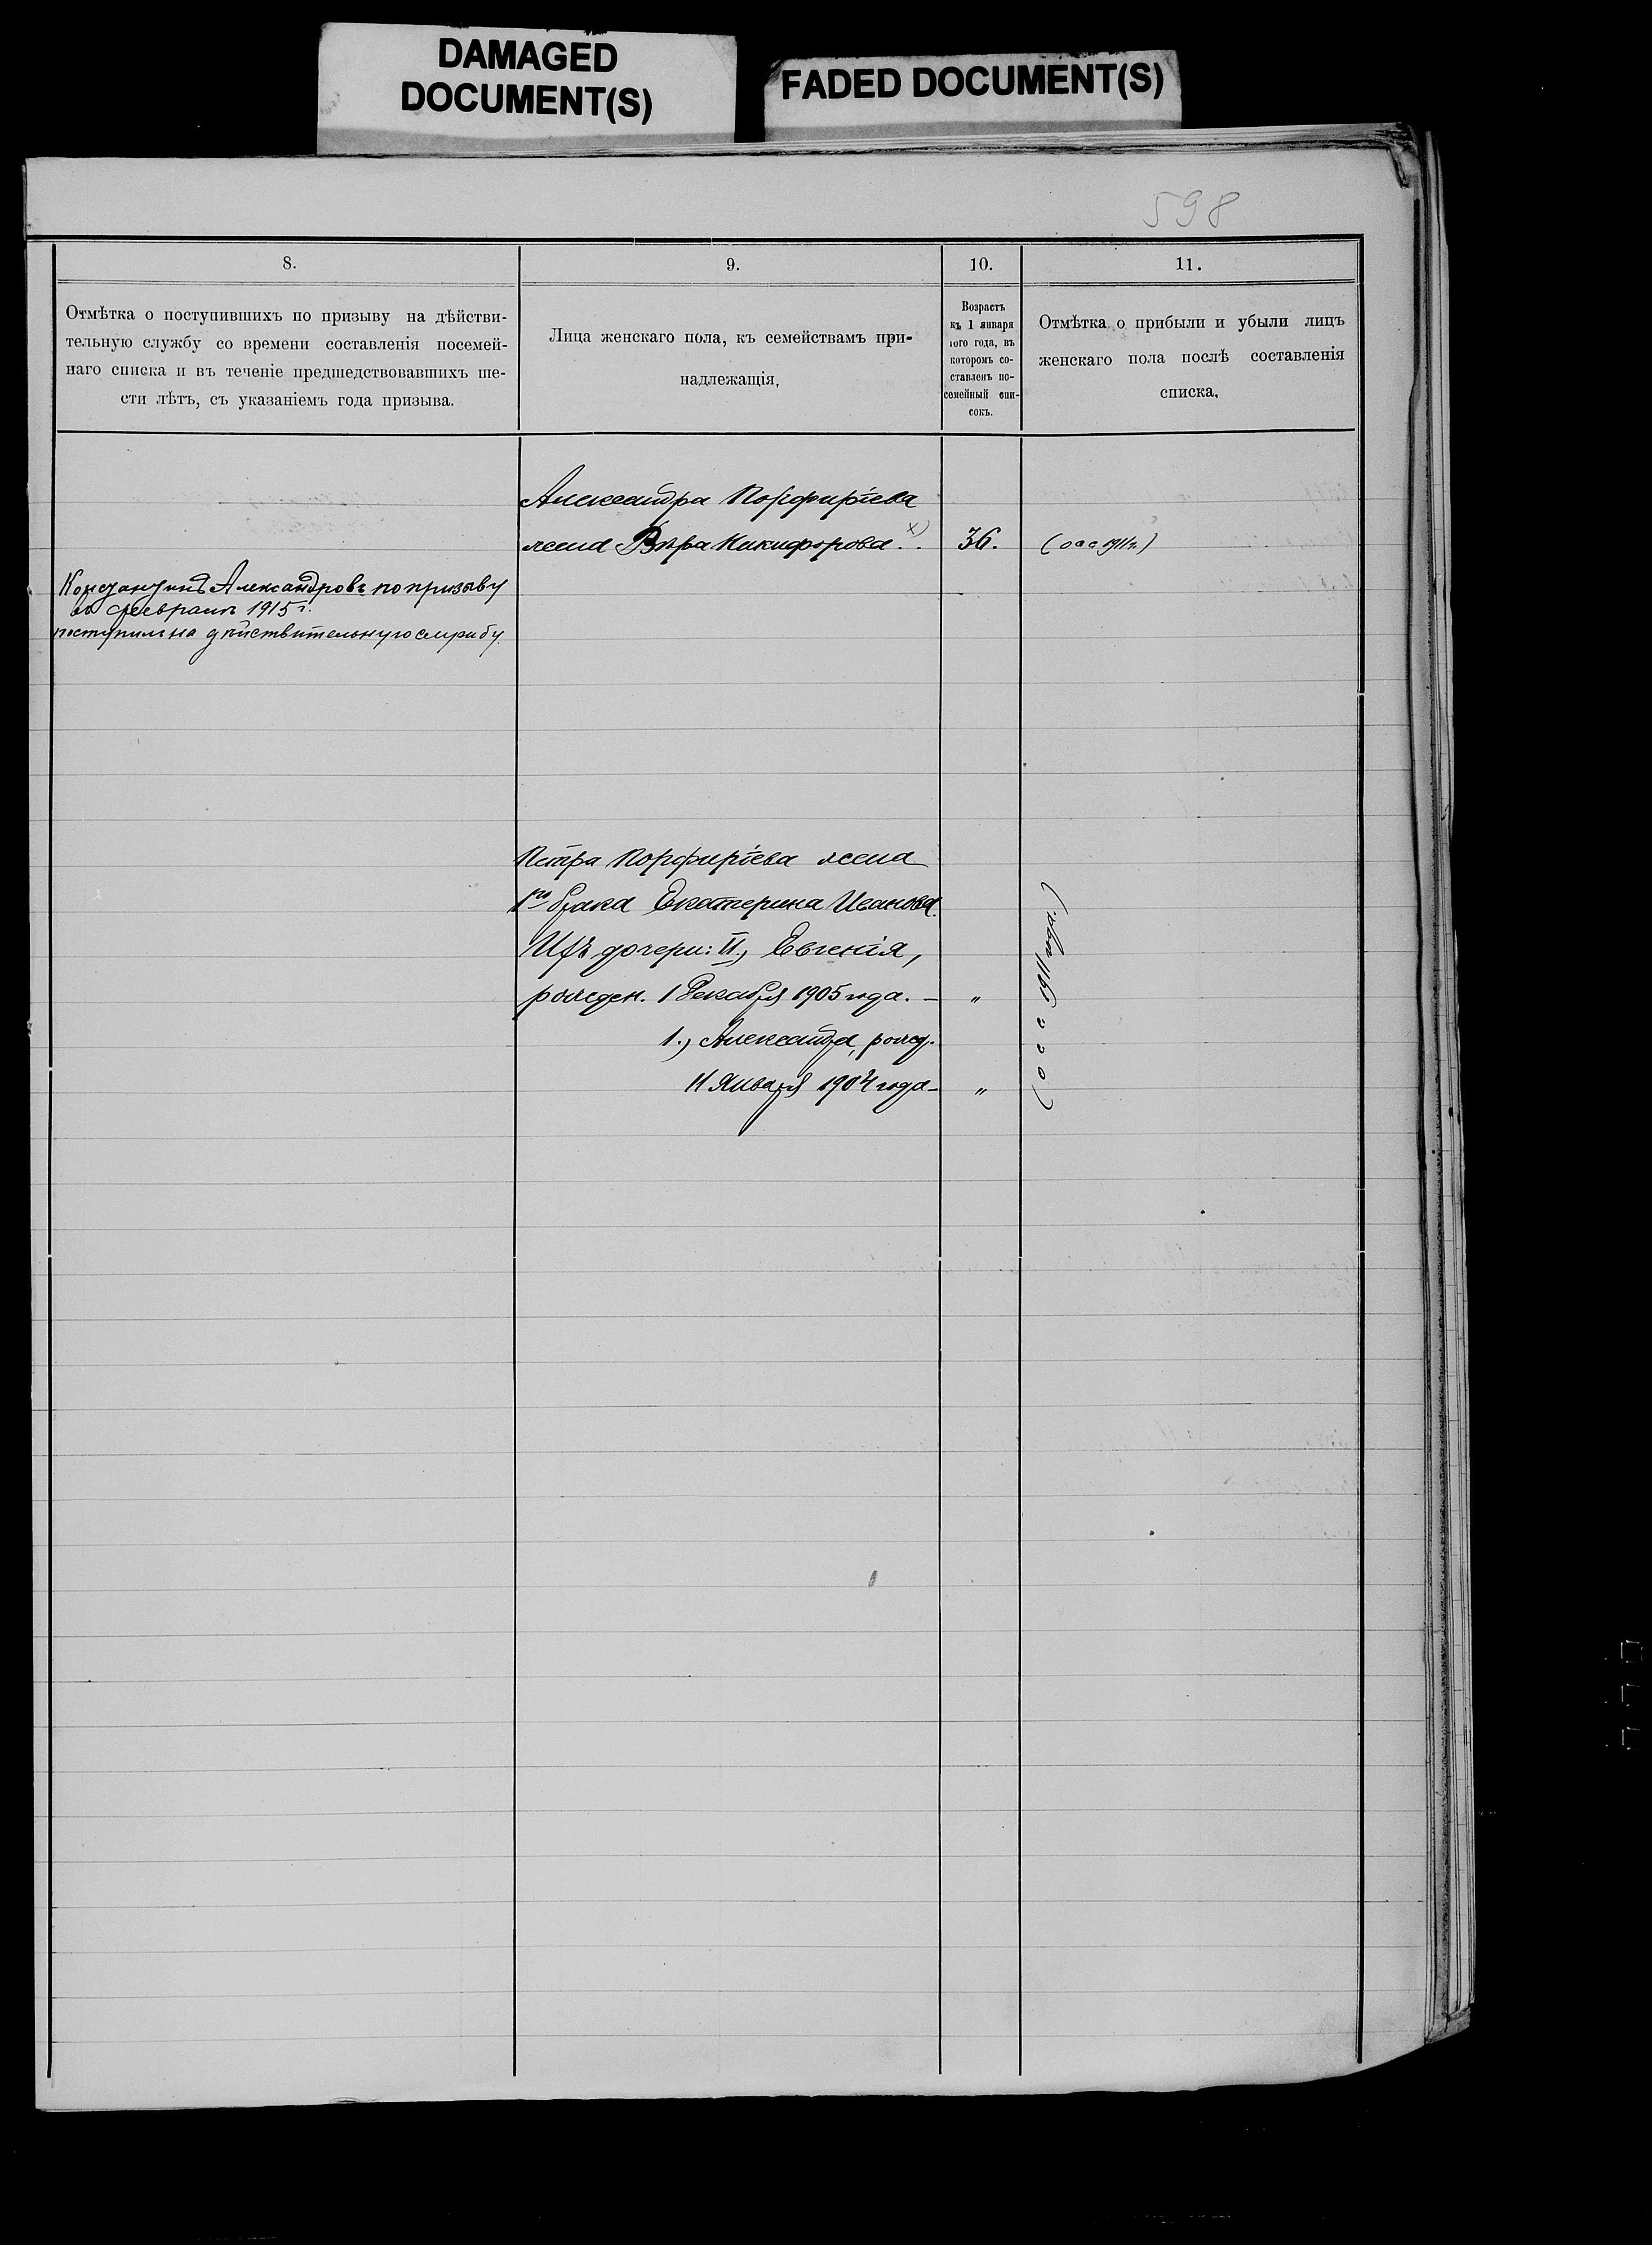 DAMAGED
DOCUMENT(S)
FADED DOCUMENT(S)
598
8.
9.
10.
11.
Отмѣтка о поступившихъ по призыву на дѣйстви-
тельную службу со времени составленія посемей-
наго списка и въ теченіе предшедствовавшихъ ше-
сти лѣтъ, съ указаніемъ года призыва.
Лица женскаго пола, къ семействамъ при-
надлежащія,
Возрастъ
къ 1 января
того года, въ
которомъ со-
ставленъ по-
семейный спи-
сокъ.
Отмѣтка о прибыли и убыли лицъ
женскаго пола послѣ составленія
списка.
Александра Порфиріева
жена Вѣра Никифорова. х)
36.
(о с с 1911 г.)
Константинъ Александровъ по призыву
въ февралѣ 1915 г.
поступилъ на дѣйствительную службу.
Петра Порфиріева жена
1го брака Екатерина Иванова.
Ихъ дочери: II.) Евгенія,
рожден. 1 Декабря 1905 года. —
"
1.) Александра, рожд.
11 Января 1904 года —
"
(о с с 1911 года.)